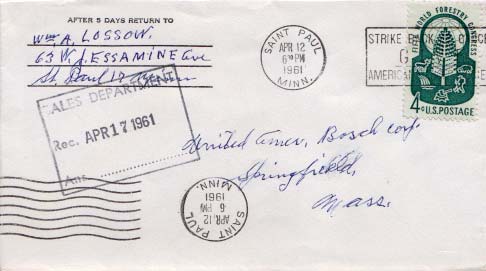 AFTER 5 DAYS RETURN TO
Wm. A. LOSSOW.
63 W. JESSAMINE Ave
St. Paul 17 Minn
SALES DEPARTMENT
Rec. APR 17 1961
Ans.
SAINT PAUL
APR 12
6 PM
1961
MINN.
STRIKE BACK
AMERICAN
FIFTH WORLD FORESTRY CONGRESS
4¢ U.S. POSTAGE
United Amer. Bosch Corp.
Springfield,
Mass.
SAINT PAUL
APR 12
6 PM
1961
MINN.